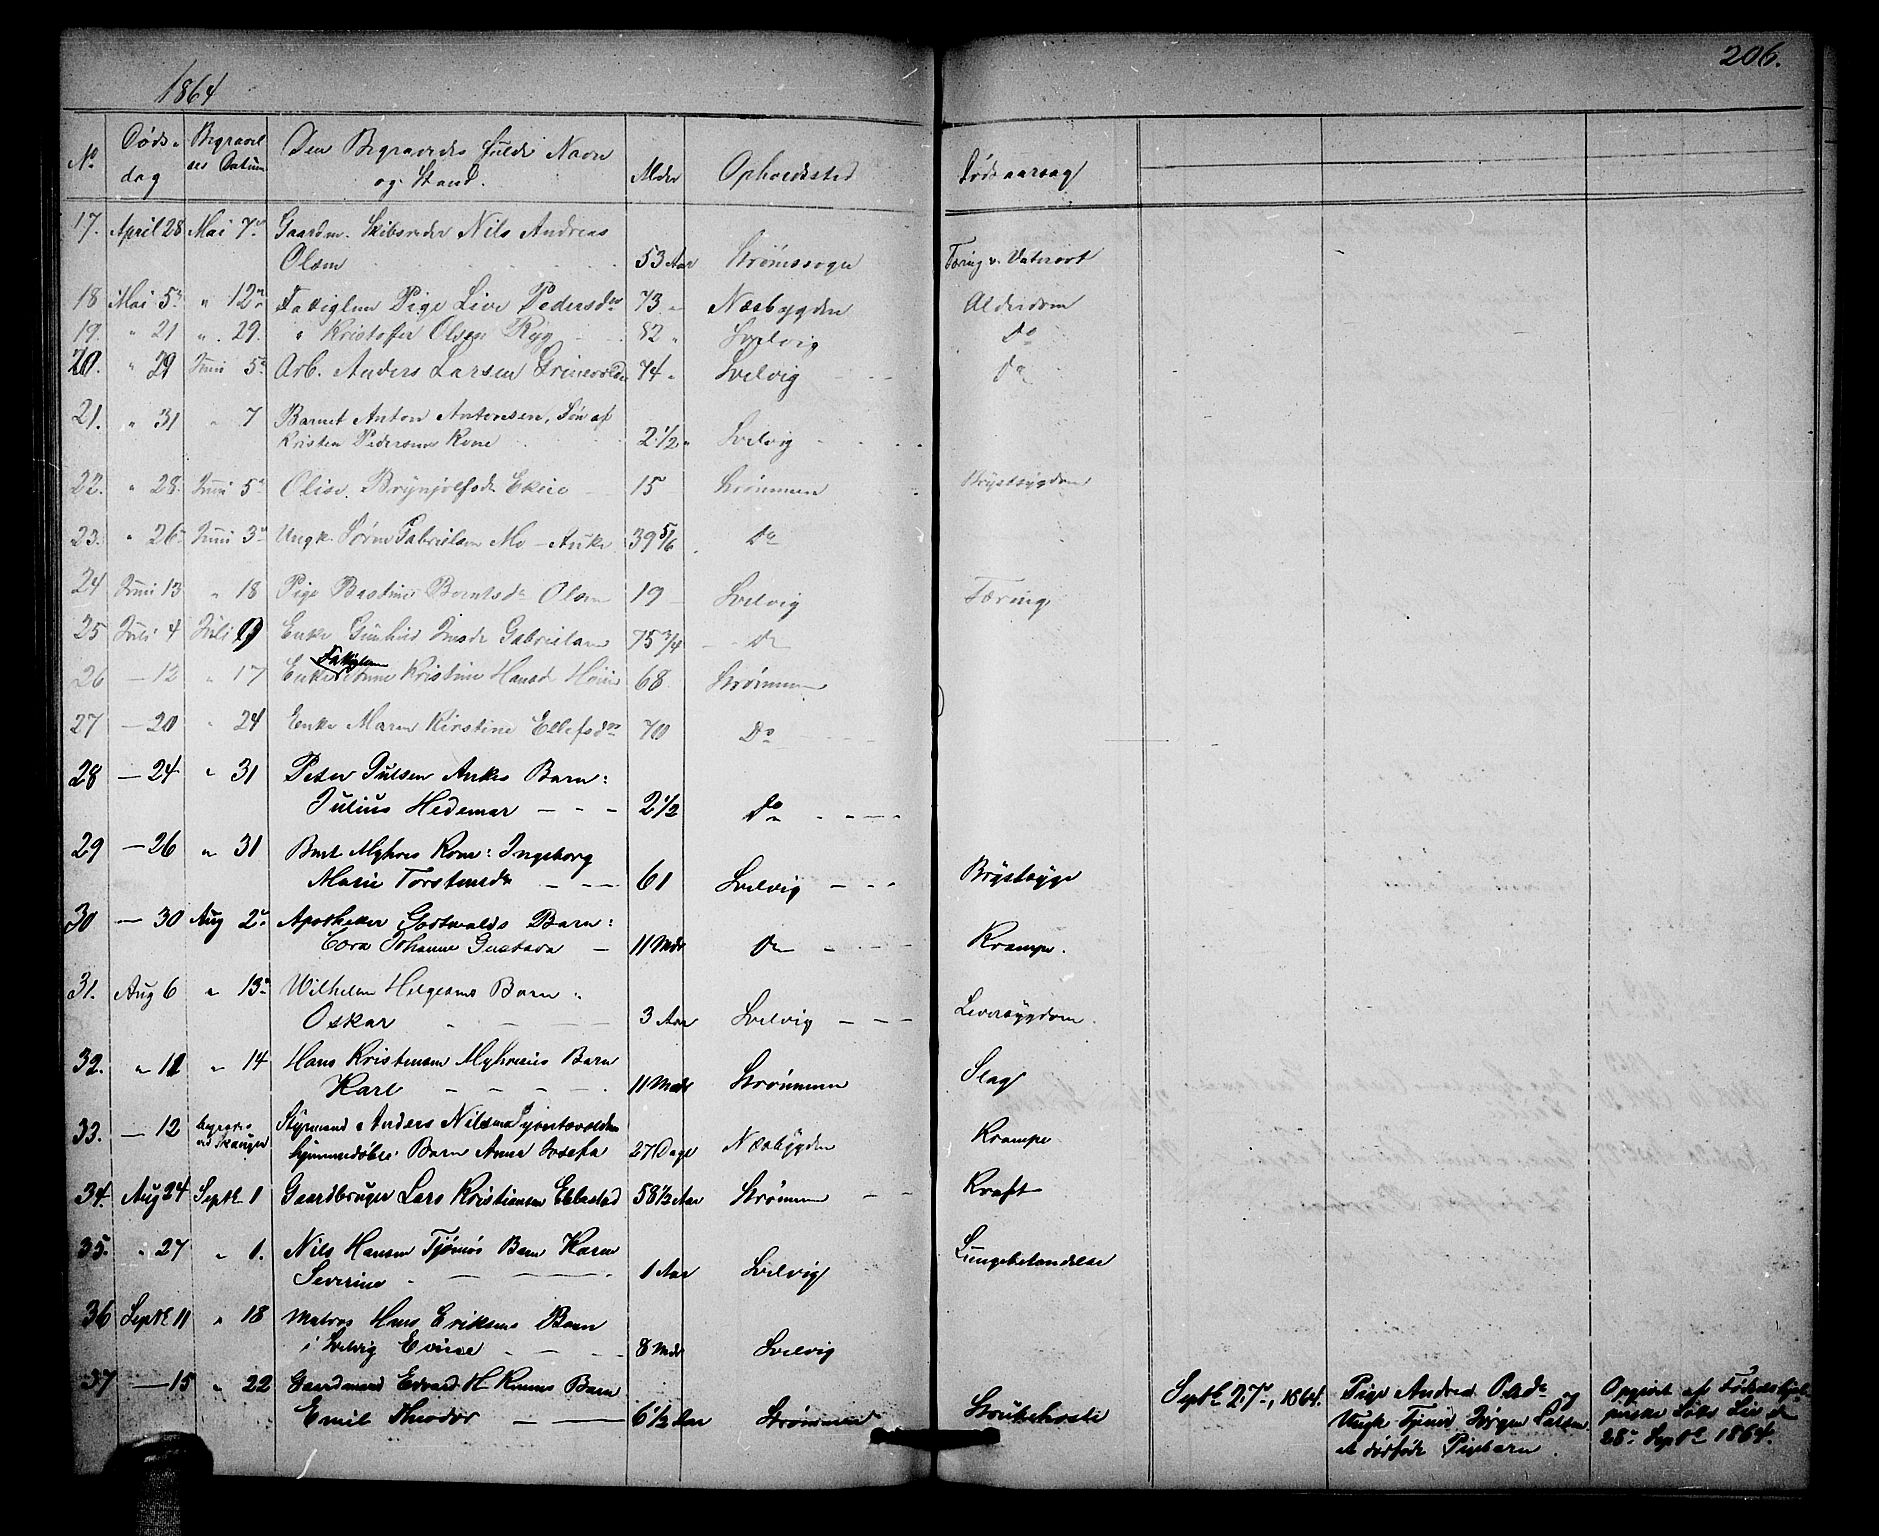 206.
1864
No Døds-dag Begravelses Datum Den Begravedes fulde Navn og Stand. Alder Opholdssted Dødsaarsag
17. April 28 Mai 7de Gaardm. Skibsreder Nils Andreas
Olsen 53 Aar Strømssogn Tæring v. Vatersot
18 Mai 5te " 12te Fattiglem Pige Live Pedersdr 73 " Næsbygden Alderdom
19. " 21 " 29. " Kristofer Olsen Ryg 82 " Svelvig Do
20. " 29 Juni 5te Arb. Anders Larsen Grinevolden 74 " Svelvig Do
21. " 31 " 7 Barnet Anton Antonsen, Søn af
Kristen Pedersens Kone 2 1/2 " Svelvig
22. " 28. Juni 5te Olise Brynjolfsdr Ekeie 15 Strømmen Brystsygdom
23. " 26 Juni 3de Ungk. Søren Gabrielsen Mo-Anke 39 5/6 Do
24 Juni 13 " 18 Pige Bastine Berntsdr Olsen 19 Svelvig Tæring
25 Juli 4 Juli 9 Enke Gunhild Gabrielsen 75 3/4 Do
Fattiglem
26 — 12 " 17 Enke Anne Kristine Hansd 68 Strømmen
27 — 20 " 24 Enke Maren Kirstine Ellefsdr 70 Do
28 — 24 " 31 Peter Julsen Ankes Barn:
Julius Hedemar — — - 2 1/2 Do
29 — 26 " 31 Bernt Myhres Kone: Ingeborg
Marie Torstensdr — — 61 Svelvig — - - Brystsyge
30 — 30 Aug 2den Apotheker Gottwalds Barn:
Cora Johanne Gustava — 11 Mdr Do — Krampe.
31. Aug 6 " 13de Wilhelm Helgesens Barn:
Oskar — — 3 Aar Svelvig — — - Leversygdom.
32. " 11 " 14 Hans Kristensen Myhreies Barn
Karl — — — 11 Mdr Strømmen Slag
33. — 12 begravet ved Skauger Styrmand Anders Nilsen
hjemmedøbte Barn Anne Josefa 27 Dage Næsbygden Krampe
34. Aug 24 Septbr 1 Gaardbruger Lars Kristiansen Ebbestad 58 1/2 Aar Strømmen — - Kræft
35. " 27 " 1. Nils Hansen Tjømøs Barn Karen
Severine — — 1 Aar Svelvig Lungebetændelse
36 Septbr 11 " 18 Matros Hans Eriksens Barn
i Svelvig — — 8 Mdr Svelvig
37 — 15 " 22 Gaardmand Edvard H. Barn
Emil Theodor — — 6 1/2 Aar Strømmen Strubehoste
Septbr 27de, 1864. Pige Andrea Olsdr og
Ungk. Tjener Jørgen Larsen
et dødfødt Pigebarn.
Opgivet af Fødselshjel-
perske
28de Septbr 1864.